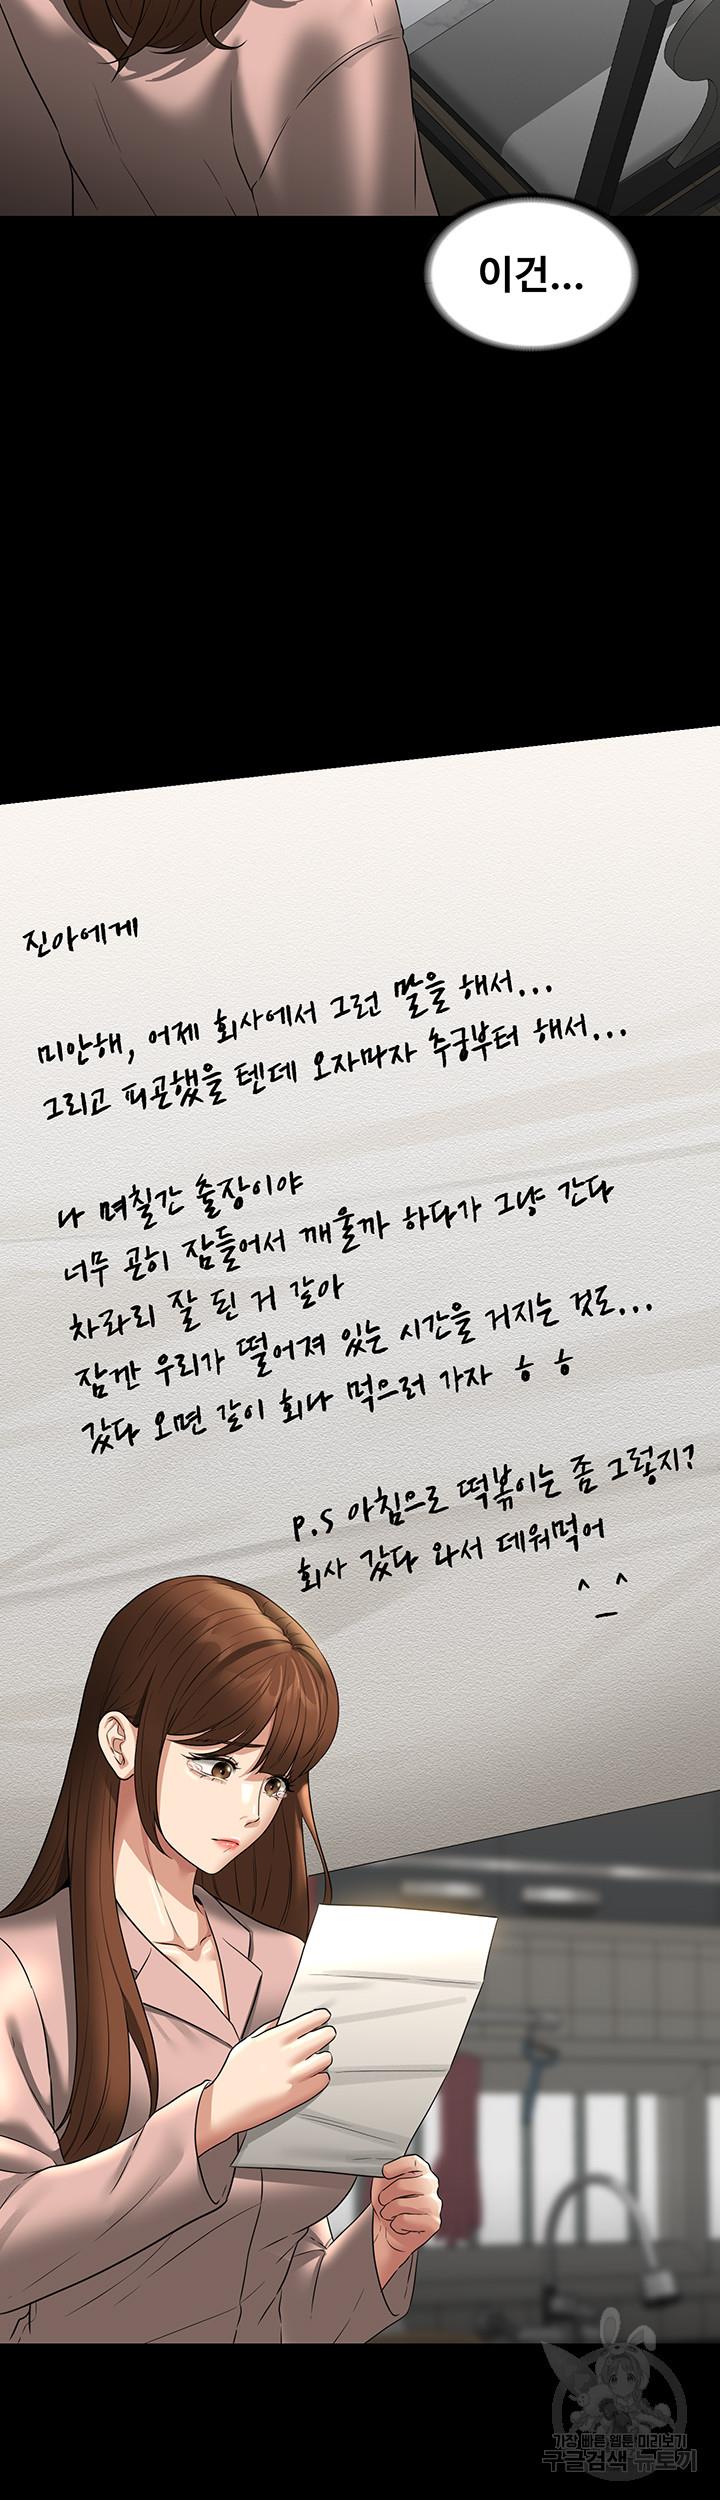 이건...
진아에게
미안해, 어제 회사에서 그런 말을 해서...
그리고 피곤했을 텐데 오자마자 추궁부터 해서...
나 며칠간 출장이야
너무 곤히 잠들어서 깨울까 하다가 그냥 간다
차라리 잘 된 거 같아
잠깐 우리가 떨어져 있는 시간을 가지는 것도...
갔다 오면 같이 회나 먹으러 가자 ㅎㅎ
P.S 아침으로 떡볶이는 좀 그렇지?
회사 갔다 와서 데워먹어
^_^
가장 빠른 웹툰 미리보기
구글검색 뉴토끼